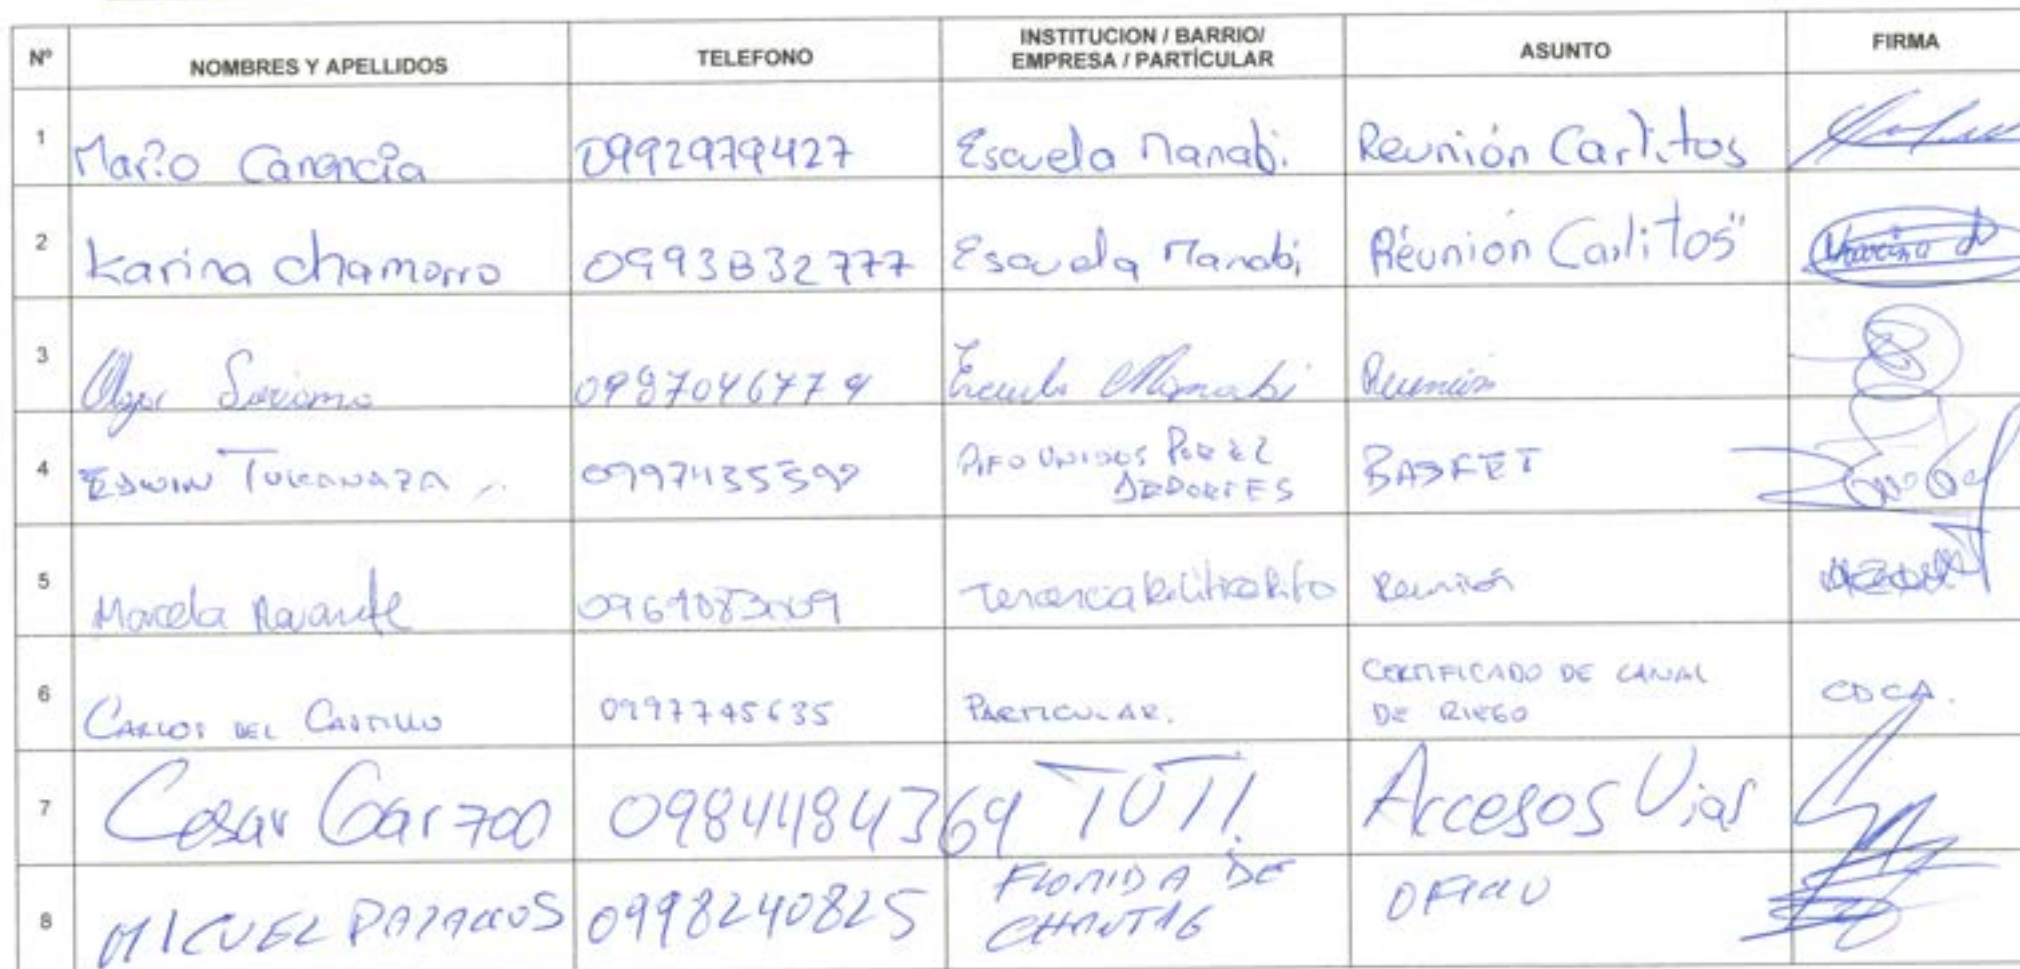 Nº NOMBRES Y APELLIDOS TELEFONO INSTITUCION / BARRIO/ EMPRESA / PARTÍCULAR ASUNTO FIRMA
1 Mario Carencia 0992979427 Escuela Manabi. Reunión Carlitos
2 Karina Chamorro 0993832777 Escuela Manabi Réunión Carlitos"
3 Olger 0987046779 Escuela Manabi Reunión
4 EDWIN PIFO UNIDOS POR EL
DEPORTES
5 Marcela Reunión
6 CARLOS DEL CASTILLO 0997745635 PARTICULAR. CERTIFICADO DE CANAL
DE RIEGO CDCA.
7 Cesar Garzon 0984484369 TUTI. Accesos Vias
8 MIGUEL 0998240825 FLORIDA DE
CHANTAG OFICIO